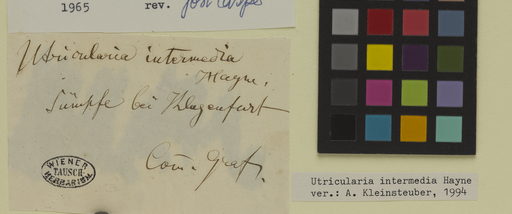 1965 rev. Josi Casper
Utricularia intermedia
Hayne.
Sümpfe bei Klagenfurt
Com. Graf.
WIENER
TAUSCH-
HERBARIUM.
Utricularia intermedia Hayne
ver.: A. Kleinsteuber, 1994